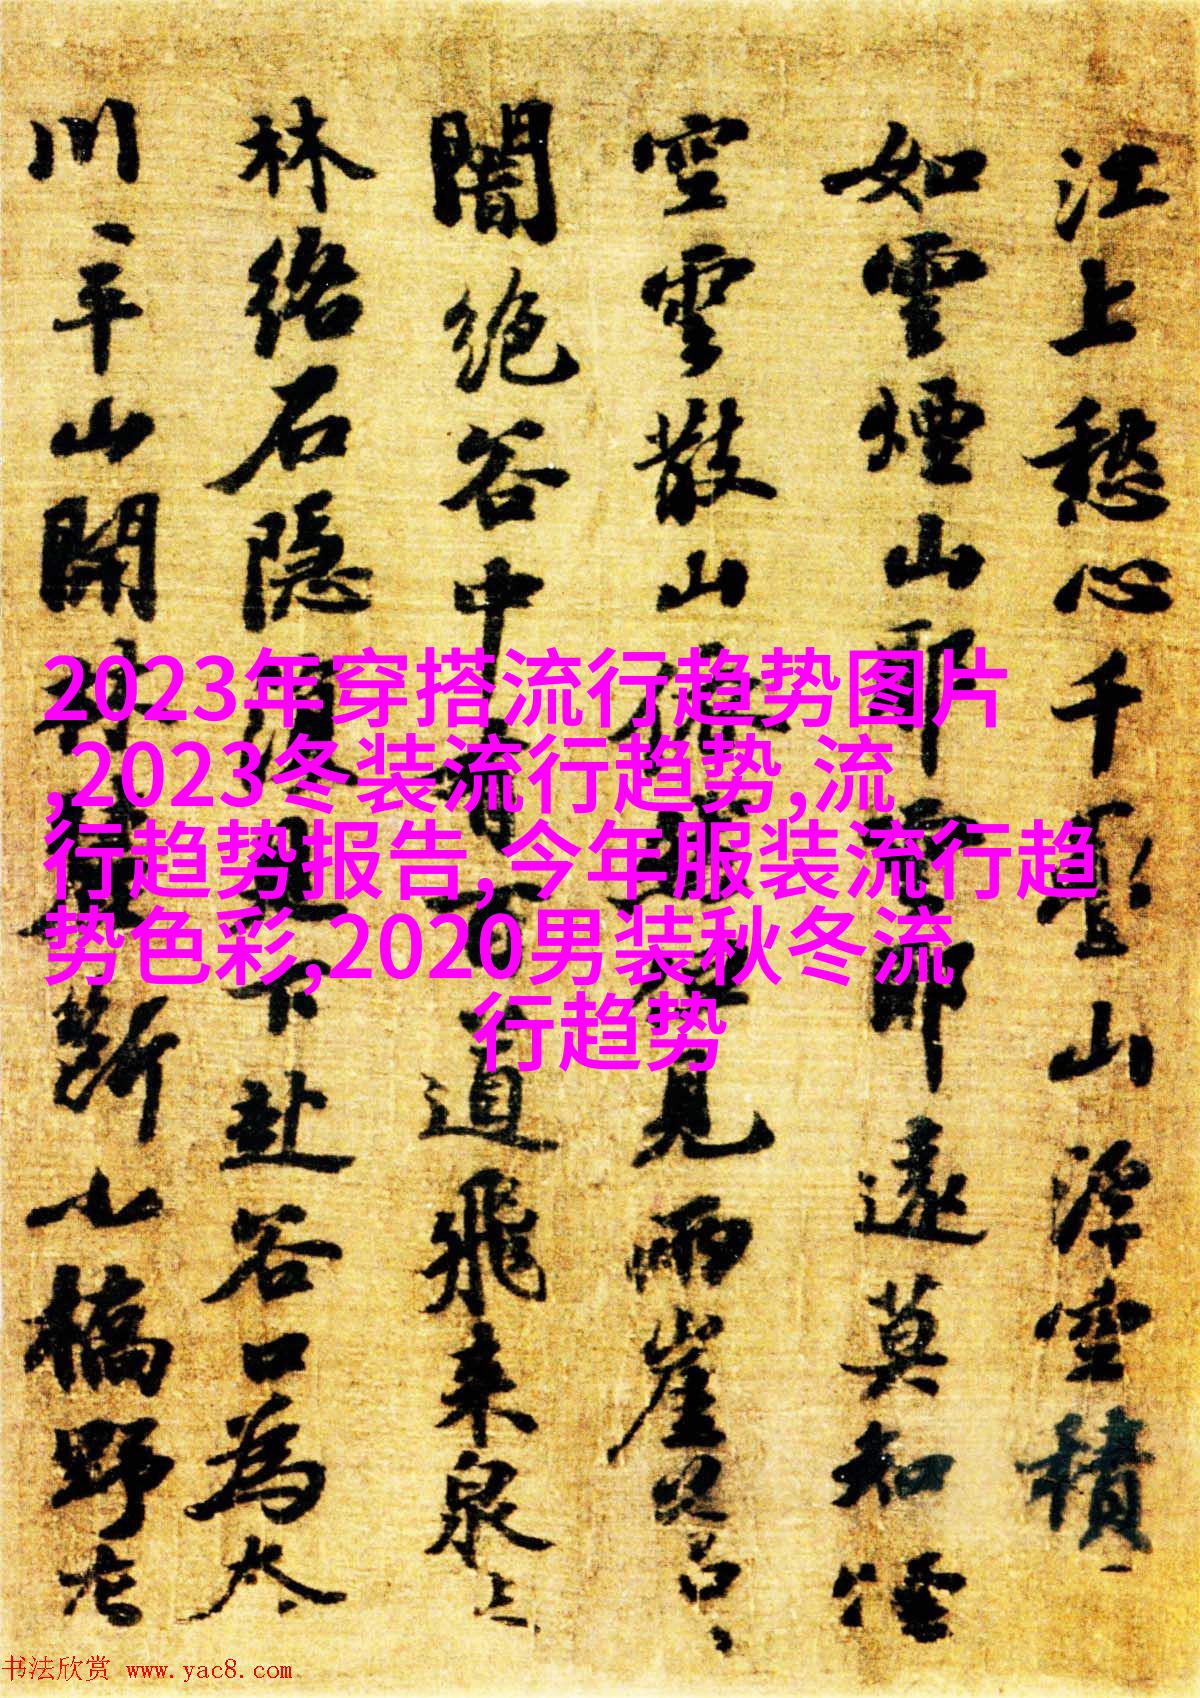 江上愁心千疊山浮空積
如雲煙山耶雲耶遠莫知煙
空雲散山依然但見兩崖蒼
闇絕谷中有百道飛來泉
林絡石隱復見下赴谷口為奔
川平山開林麓斷小橋野店
2023年穿搭流行趋势图片
,2023冬装流行趋势,流
行趋势报告,今年服装流行趋
势色彩,2020男装秋冬流
行趋势
书法欣赏 www.yac8.com